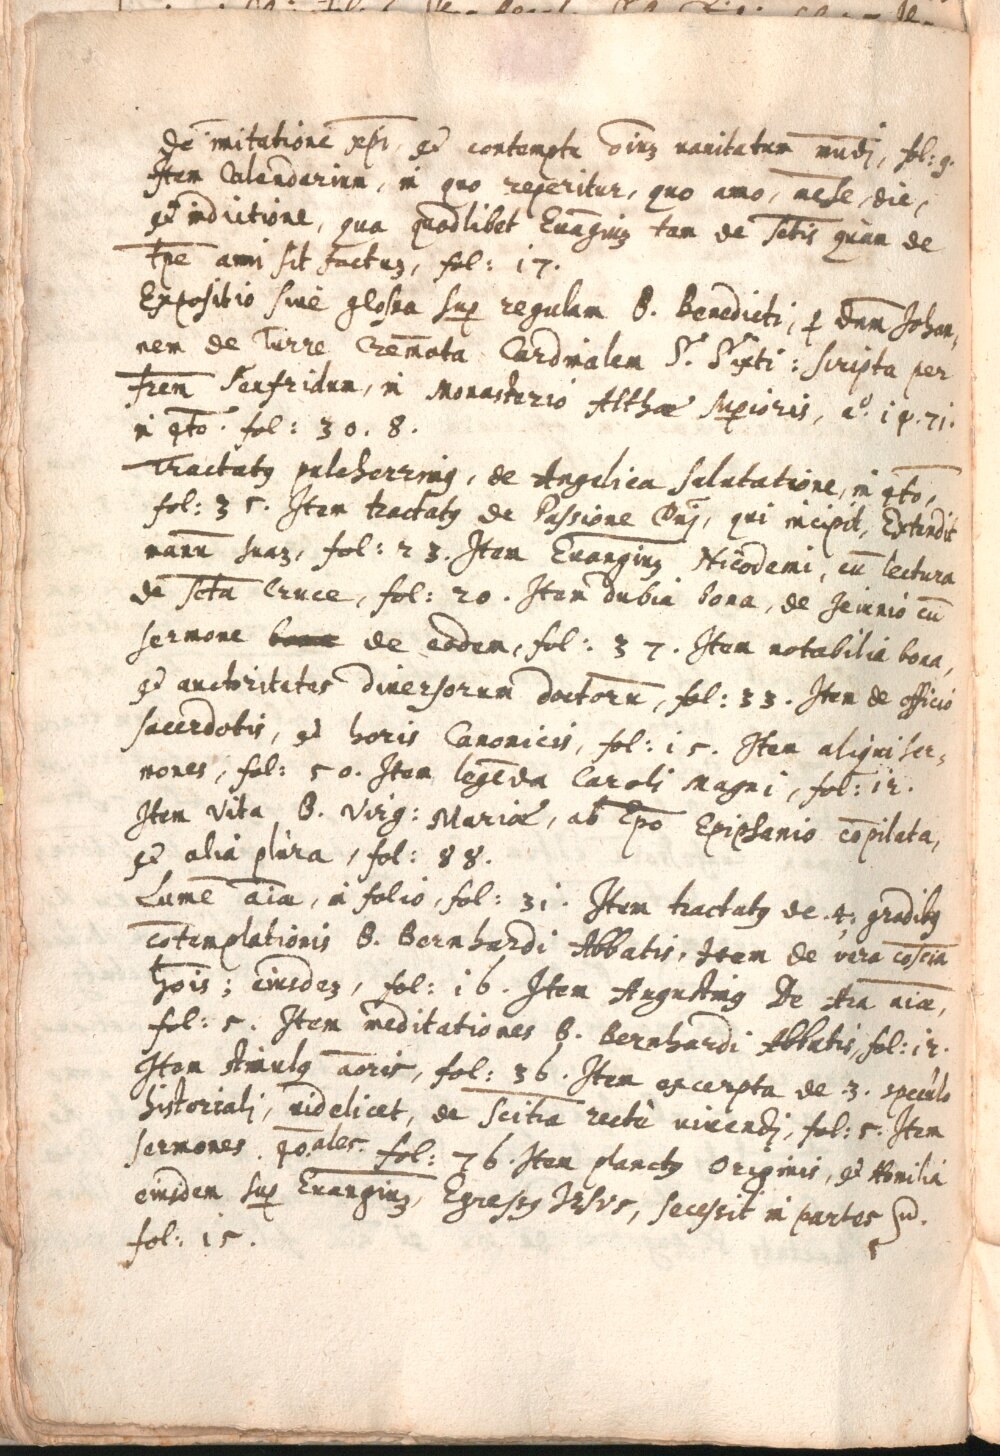 De imitatione xp̄i, et contemptu oīuȝ vanitatum mūdj, fol: 9.
Item Calendarium, in quo reperitur, quo āno, mēse, die,
et indictione, qua quodlibet Euāgiuȝ tam de sctīs quàm de
tp̄e anni sit factuȝ, fol: 17.
Expositio siue glossa sup̱ regulam B. Benedicti, ꝑ dn̄m Johan,
nem de Turre Cremata Cardinalem S. Sixti: scripta per
frēm Senfridum, in Monasterio Althæ Suꝑioris, aº. 1471.
in q̄to. fol: 308.
Tractatꝯ pulcherrimꝯ, de Angelica salutatione, in q̄to,
fol: 35. Item tractatꝯ de Passione Dn̄j, qui incipit, Extendit
manū suaȝ, fol: 23. Item Euangiuȝ Nicodemi, cū lectura
de sctā Cruce, fol: 20. Item dubia bona, de Jeiunio cū
sermone bona de eodem, fol: 37. Item notabilia bona,
et auctoritates diuersorum doctorū, fol: 33. Item de officio
sacerdotis, et horis Canonicis, fol: 15. Item aliqui ser,
mones, fol: 50. Item legēda Caroli magni, fol: 12.
Item vita B. Virg: Mariæ, ab Epō Epiphanio cōpilata,
et alia plura, fol: 88.
Lumē aīæ, in folio, fol: 31. Item tractatꝯ de .4. gradibꝯ
cōtemplationis B. Bernhardi Abbatis. Item de vera coscīa
hoīs; eiusdeȝ, fol: 16. Item Augustinꝯ De Ara aīæ,
fol: 5. Item meditationes B. Bernhardi Abbatis, fol: 12.
Item stimulꝯ aōris, fol: 36. Item excerpta de .3. speculo
historialj, videlicet, de scītia rectè viuendj, fol: 5. Item
sermones q̄oales. fol: 76. Item planctꝯ Originis, et Homilia
eiusdem sup̱ Euangiuȝ, Egressꝯ IESVS, secessit in partes
fol: 15.